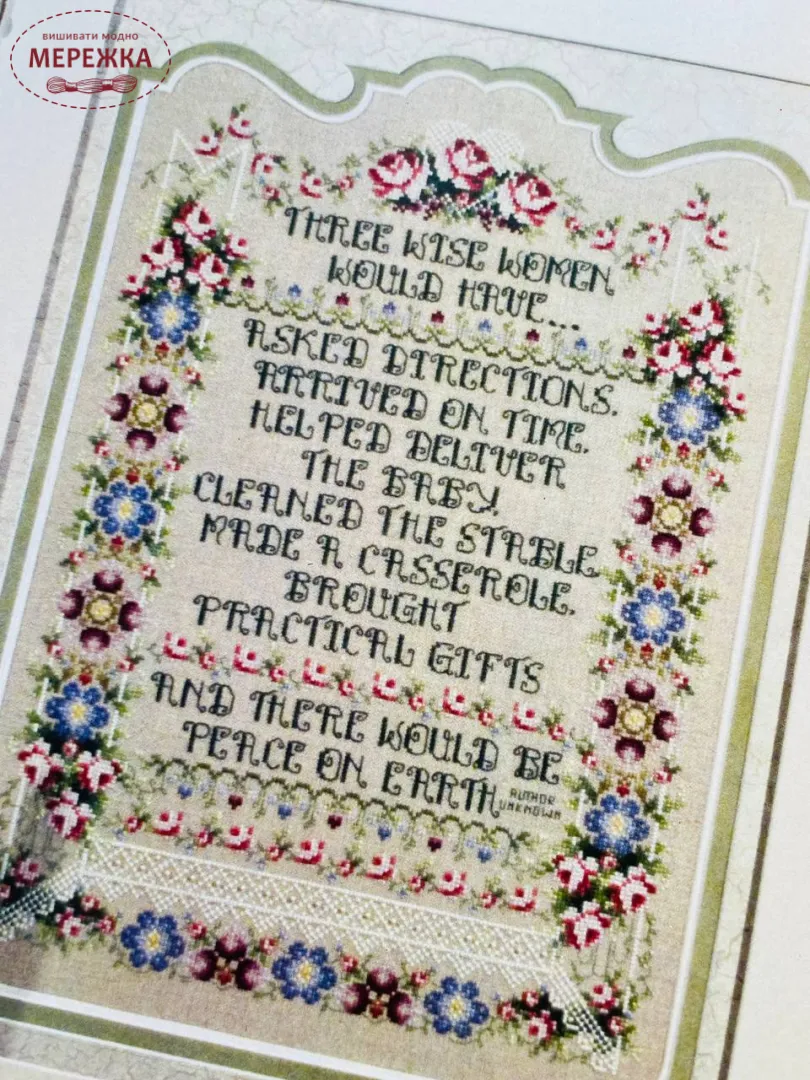 вишивати модно
МЕРЕЖКА
THREE WISE WOMEN
WOULD HAVE...
ASKED DIRECTIONS.
ARRIVED ON TIME.
HELPED DELIVER
THE BABY.
CLEANED THE STABLE
MADE A CASSEROLE.
BROUGHT
PRACTICAL GIFTS
AND THERE WOULD BE
PEACE ON EARTH
AUTHOR
UNKNOWN